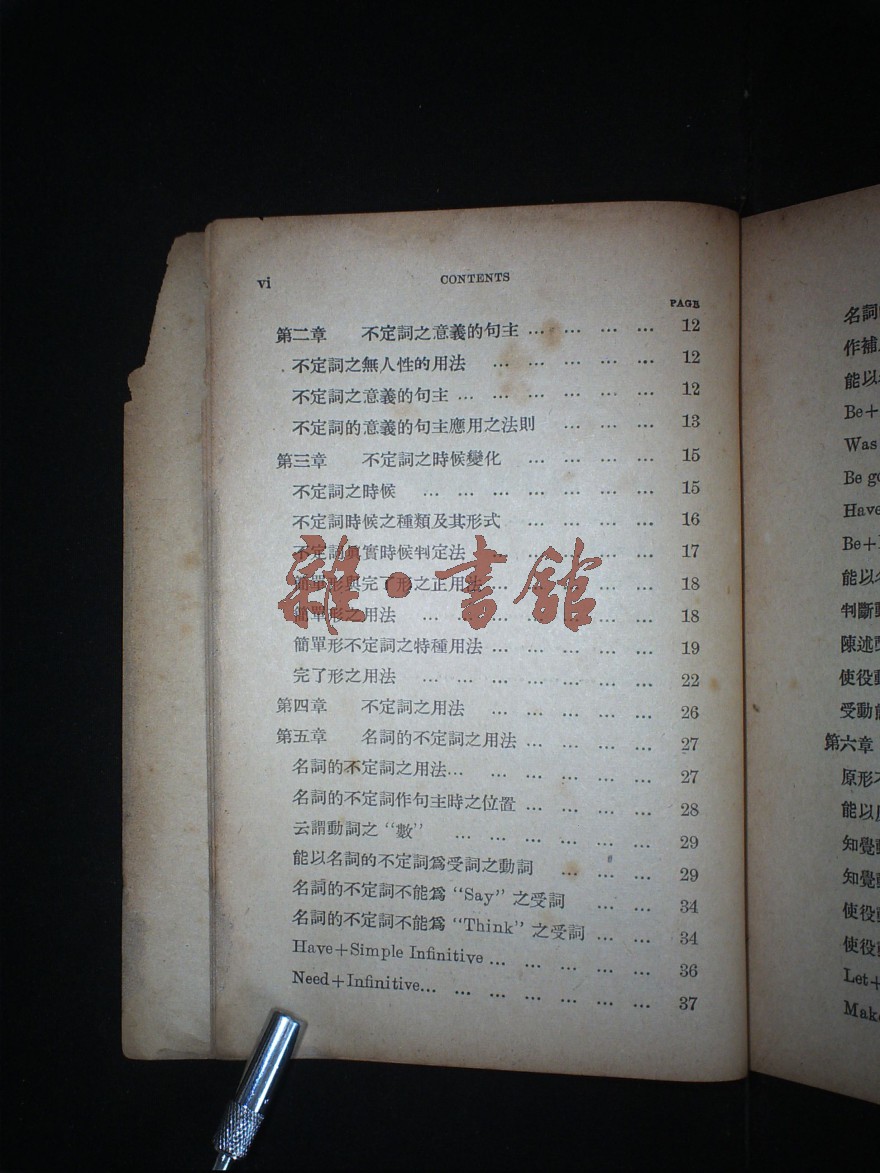 vi CONTENTS
PAGE
第二章 不定詞之意義的句主 ... ... ... ... 12
不定詞之無人性的用法 ... ... ... ... ... 12
不定詞之意義的句主 ... ... ... ... ... ... 12
不定詞的意義的句主應用之法則 ... ... ... 13
第三章 不定詞之時候變化 ... ... ... ... 15
不定詞之時候 ... ... ... ... ... ... ... 15
不定詞時候之種類及其形式 ... ... ... ... 16
不定詞眞實時候判定法 ... ... ... ... ... 17
簡單形與完了形之正用法 ... ... ... ... ... 18
簡單形之用法 ... ... ... ... ... ... ... 18
簡單形不定詞之特種用法 ... ... ... ... ... 19
完了形之用法 ... ... ... ... ... ... ... 22
第四章 不定詞之用法 ... ... ... ... ... 26
第五章 名詞的不定詞之用法 ... ... ... ... 27
名詞的不定詞之用法... ... ... ... ... ... 27
名詞的不定詞作句主時之位置 ... ... ... ... 28
云謂動詞之“數” ... ... ... ... ... ... 29
能以名詞的不定詞爲受詞之動詞 ... ... ... 29
名詞的不定詞不能爲“Say”之受詞 ... ... 34
名詞的不定詞不能爲“Think”之受詞 ... ... 34
Have+Simple Infinitive ... ... ... ... ... 36
Need+Infinitive... ... ... ... ... ... ... 37
雜·書館
名詞
作補
能以
Be+
Was
Be go
Have
Be+
能以名
判斷
陳述
使役動
受動
第六章
原形不
能以
知覺動
知覺動
使役
使役
Let+
Mak